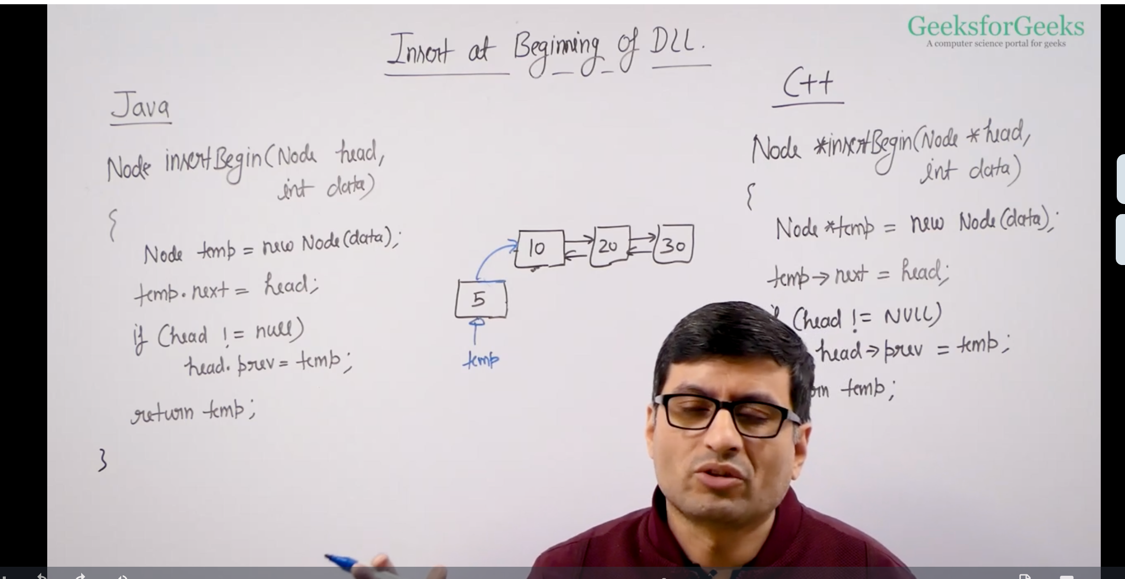 GeeksforGeeks
A computer science portal for geeks
Insert at Beginning of DLL.
Java
Node insertBegin(Node head,
int data)
{
Node temp = new Node(data);
temp.next = head;
if (head != null)
head.prev = temp;
return temp;
}
10 20 30
5
temp
C++
Node *insertBegin(Node *head,
int data)
{
Node *temp = new Node(data);
temp→next = head;
(head != NULL)
head→prev = temp;
temp;